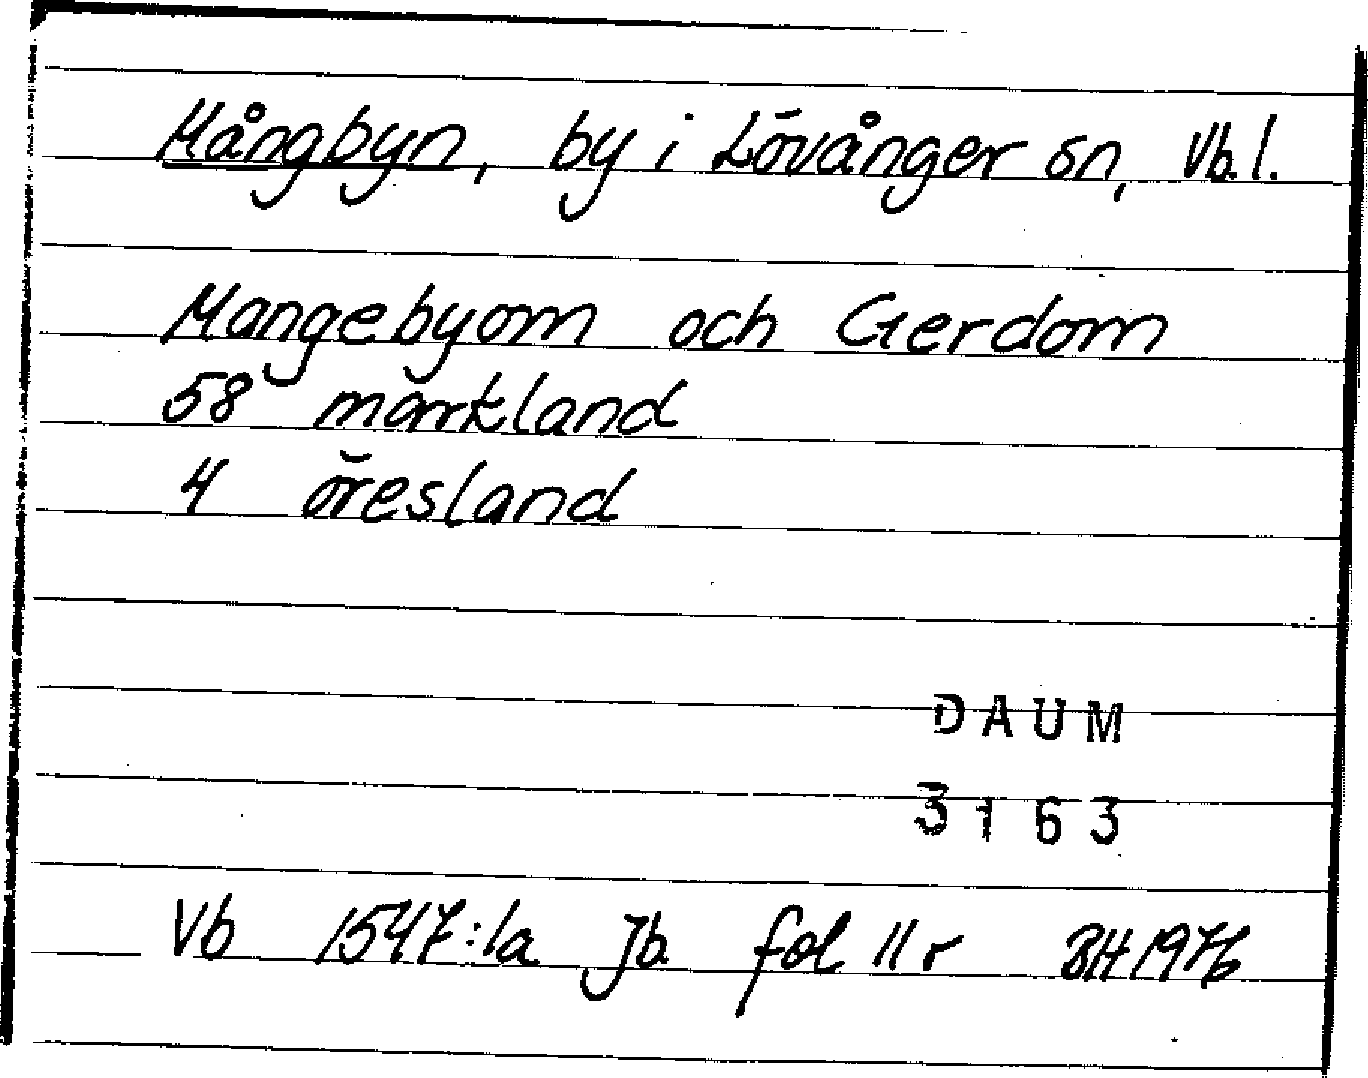 Mångbyn, by i Lövånger sn, Vb.l.
Mangebyom och Gerdom
58 markland
4 öresland
DAUM
3163
Vb 1547:1a Jb fol 11 r BH 1976